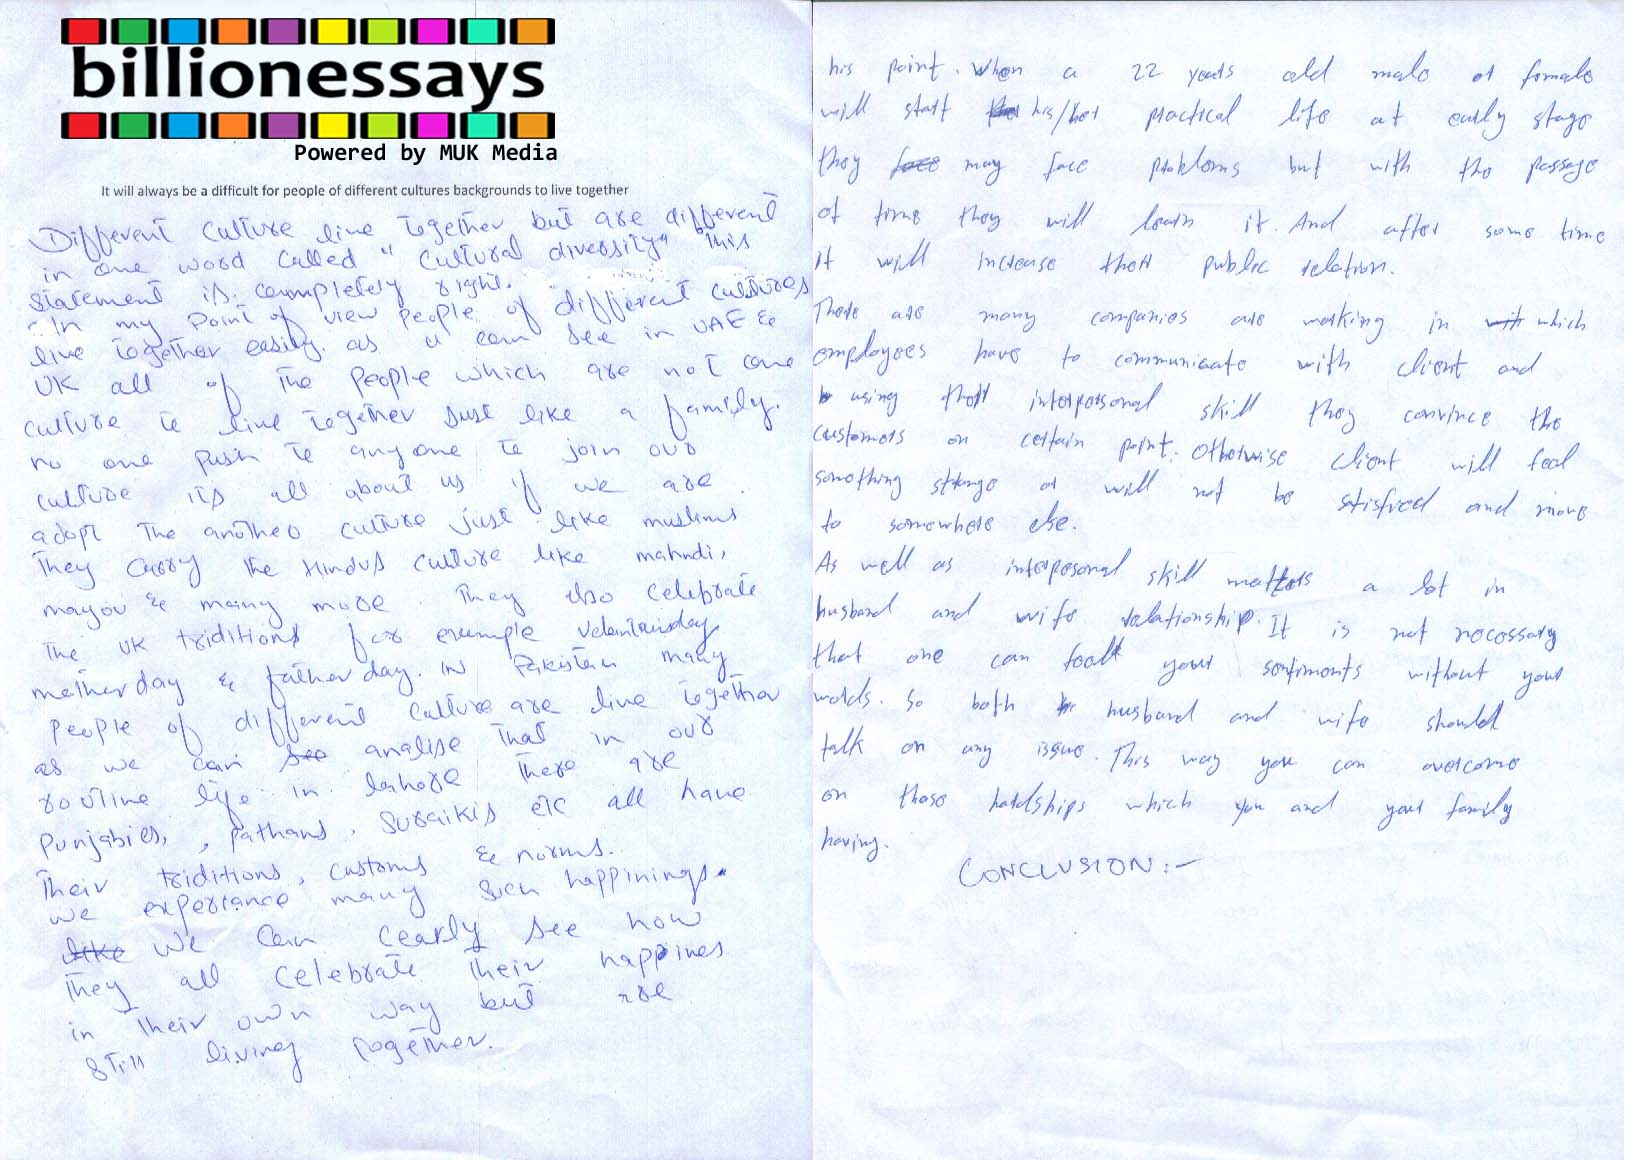 billionessays
Powered by MUK Media
It will always be a difficult for people of different cultures backgrounds to live together
Different culture live together but are different
in one word called "Cultural diversity" this
statement is completely right.
In my point of view people of different cultures
live together easily. as u can see in UAE &
UK all of the people which are not one
culture to live together Just like a family.
no one push to any one to join our
culture its all about us if we are
adopt the another culture just like muslims
They carry the Hindus culture like mahndi,
mayou & many more. They also celebrate
The UK triditions for exumple Velentainsday
motherday & fatherday. in Pakistan many
people of different culture are live together
as we can see analise that in our
routine life in lahore there are
Punjabies, , Pathans, suraikis etc all have
Their triditions, customs & norms.
we experiance many such happinings.
like we can cearly see how
They all celebrate their happines
in their own way but are
still living together.
his point. When a 22 years old male or female
will start his/her practical life at early stage
they face may face problems but with the passage
of time they will learn it. And after some time
it will increase their public relation.
There are many companies are working in which
employees have to communicate with client and
using their interpersonal skill they convince the
customers on certain point. Otherwise client will feel
something strange or will not be satisfied and move
to somewhere else.
As well as interposonal skill matters a lot in
husband and wife relationship. It is not necessary
that one can feel your sentiments without your
words. So both husband and wife should
talk on any issue. This way you can overcome
on those hardships which you and your family
having.
CONCLUSION:-